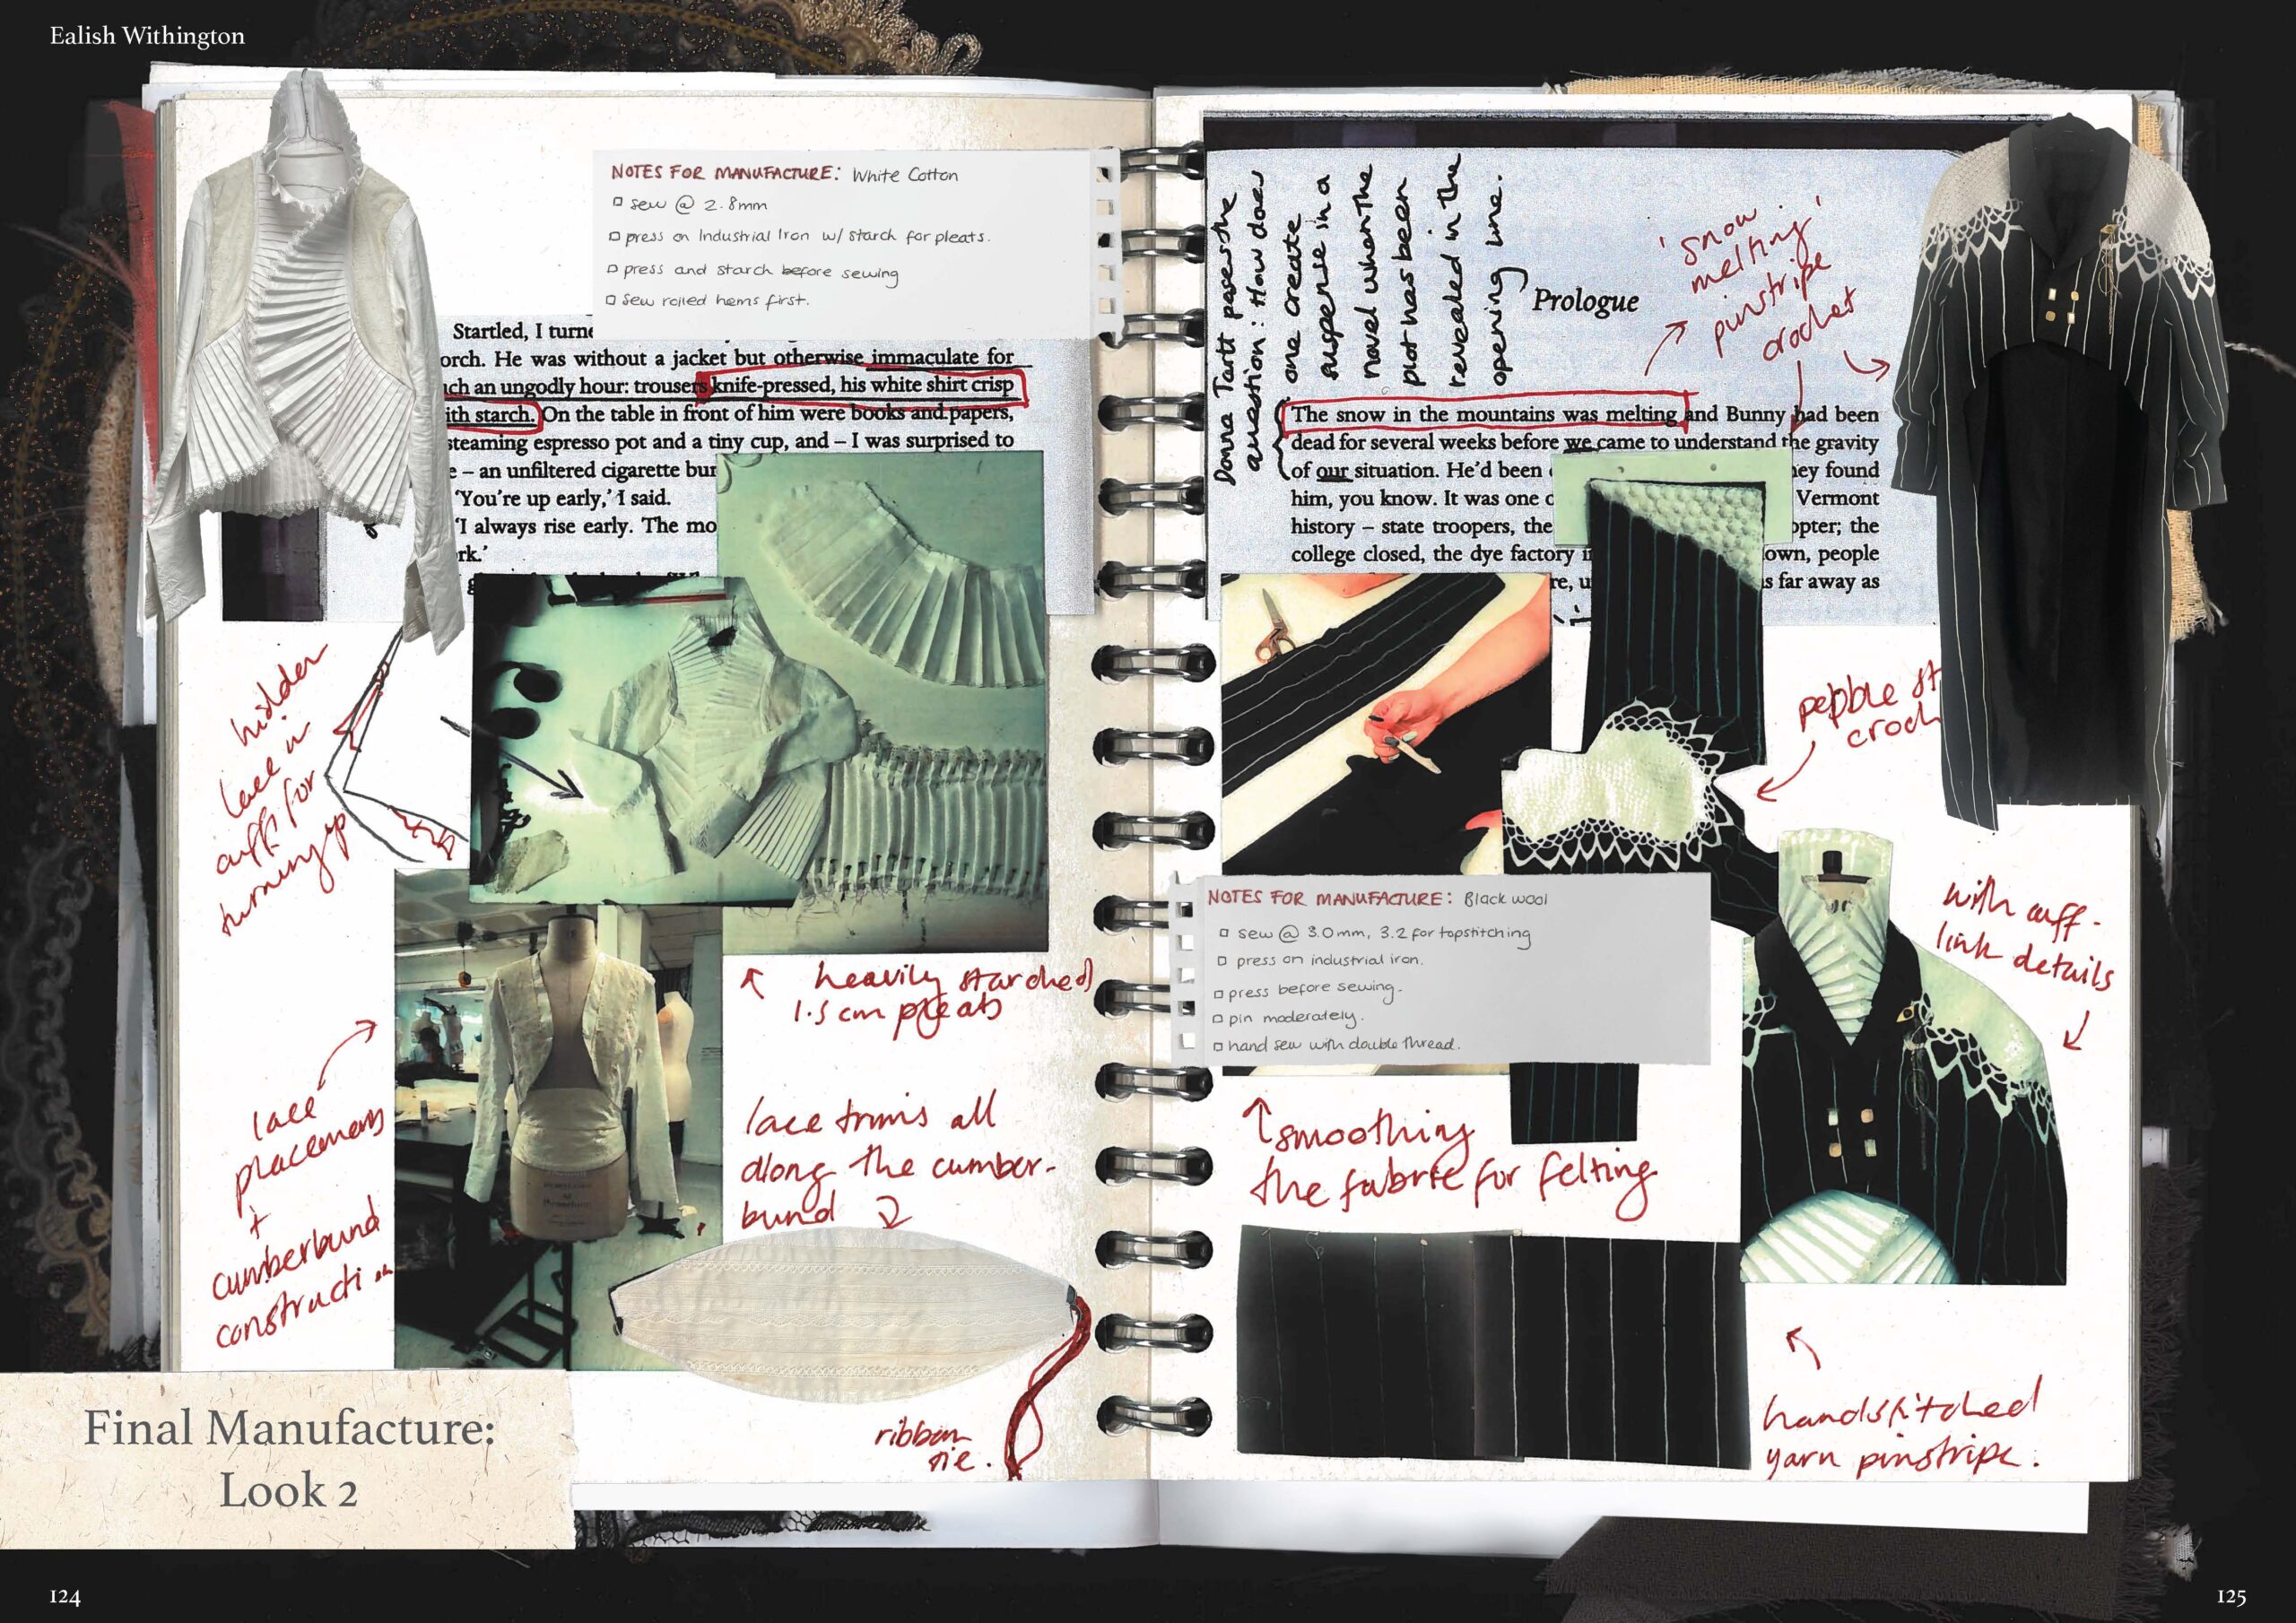 Ealish Withington
NOTES FOR MANUFACTURE: White Cotton
sew @ 2.8mm
press on Industrial Iron w/ starch for pleats.
press and starch before sewing
sew rolled hems first.
Startled, I turne
orch. He was without a jacket but otherwise immaculate for
ch an ungodly hour: trousers knife-pressed, his white shirt crisp
ith starch. On the table in front of him were books and papers,
steaming espresso pot and a tiny cup, and – I was surprised to
e – an unfiltered cigarette bur
‘You're up early,’ I said.
‘I always rise early. The mo
rk.’
hidden
lace in
cuff for
turning up
heavily starched
1.5 cm pleats
lace
placement
+
cumberbund
construction
lace trims all
along the cumber-
bund
ribbon
tie.
Final Manufacture:
Look 2
124
Donna Tartt poses the
question: How does
one create
suspense in a
novel when the
plot has been
revealed in the
opening line.
Prologue
'snow
melting'
pinstripe
crochet
The snow in the mountains was melting and Bunny had been
dead for several weeks before we came to understand the gravity
of our situation. He'd been hey found
him, you know. It was one Vermont
history – state troopers, the opter; the
college closed, the dye factory own, people
re, s far away as
pebble st
croch
NOTES FOR MANUFACTURE: Black wool
sew @ 3.0mm, 3.2 for topstitching
press on industrial iron.
press before sewing.
pin moderately.
hand sew with double thread.
with cuff-
link details
smoothing
the fabric for felting
handstitched
yarn pinstripe.
125